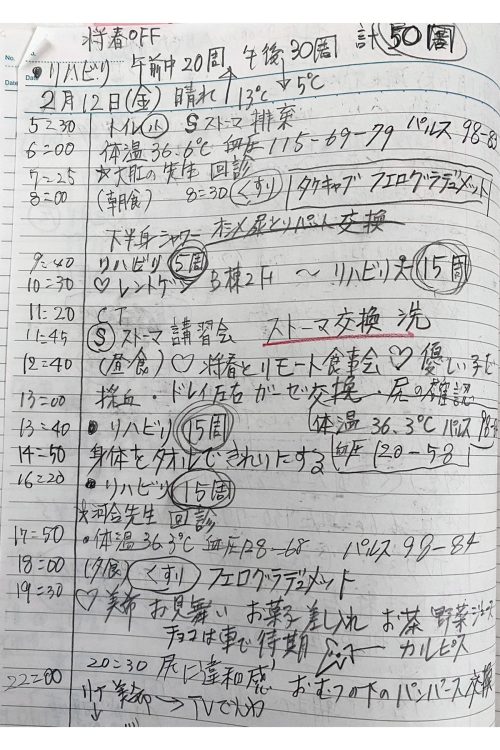 将春OFF
No.
Date
・リハビリ 午前中20周 午後30周 計50周
2月12日(金) 晴れ ↑13℃ ↓5℃
5=30 トイレ(小) Sストーマ 排便
6=00 体温36.6℃ 血圧115-69-79 パルス98-83
7=25 ☆大肛の先生 回診
8=00 (朝食) 8=30 くすり タケキャブ フェログラデュメット
下半身シャワー 交換
9=40 リハビリ 5周
10=30 ♡レントゲン B棟2H ~ リハビリ 15周
11=20 CT
11=45 Sストーマ 講習会 ストーマ交換 洗
12=40 (昼食) ♡将春とリモート食事会♡ 優しい子だ
13=00 ・ドレイン左右 ガーゼ交換・尻の確認
13=40 ・リハビリ 15周 体温36.3℃ パルス98-
14=50 身体をタオルできれいにする 血圧120-58
16=20 ・リハビリ 15周
☆河合先生 回診
17=50 ・体温36.3℃ 血圧128-68 パルス98-84
18=00 (夕食) くすり フェログラデュメット
19=30 ♡美希 お見舞い お菓子差し入れ お茶 野菜ジュース
チョコは車で待期 カルピス
20=30 尻に違和感 おむつの下のパンパース交換
22=00
↓ → TV